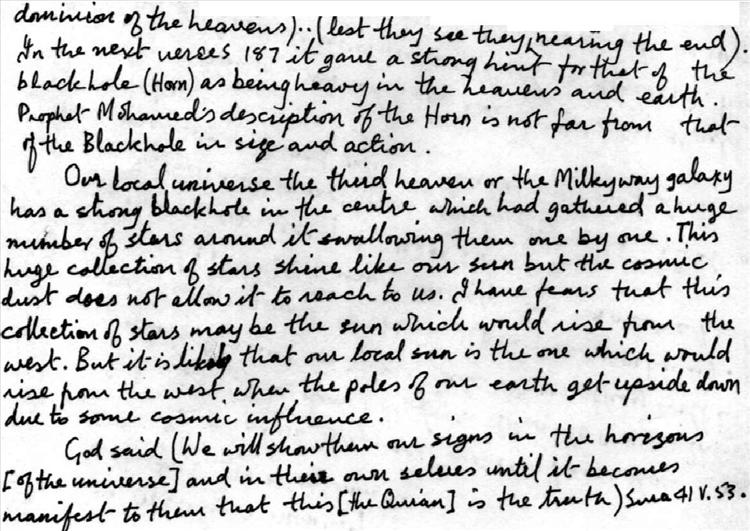 dominion of the heavens)..(lest they see they, nearing the end).
In the next verses 187 it gave a strong hint for that of the
blackhole (Horn) as being heavy in the heavens and earth.
Prophet Mohamed's description of the Horn is not far from that
of the Blackhole in size and action.
Our local universe the third heaven or the Milkyway galaxy
has a strong blackhole in the centre which had gathered a huge
number of stars around it swallowing them one by one. This
huge collection of stars shine like our sun but the cosmic
dust does not allow it to reach to us. I have fears that this
collection of stars may be the sun which would rise from the
west. But it is likely that our local sun is the one which would
rise from the west, when the poles of our earth get upside down
due to some cosmic influence.
God said (We will show them our signs in the horizons
[of the universe] and in their own selves until it becomes
manifest to them that this [the Quran] is the truth) Sura 41 V. 53.